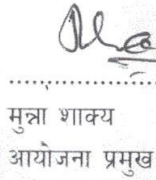 ....................
मुन्ना शाक्य
आयोजना प्रमुख